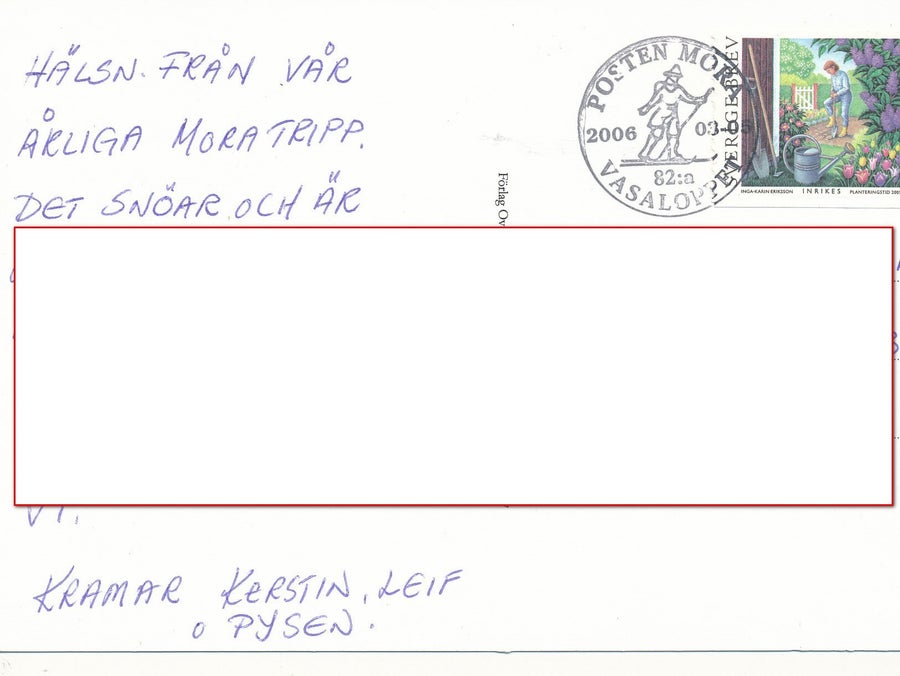 HÄLSN. FRÅN VÅR
ÅRLIGA MORATRIPP.
DET SNÖAR OCH ÄR
VI.
KRAMAR KERSTIN, LEIF
O PYSEN.
Förlag Ov
POSTEN MORA
2006 03-05
82:a
VASALOPPET
SVERIGE BREV
INGA-KARIN ERIKSSON INRIKES PLANTERINGSTID 200